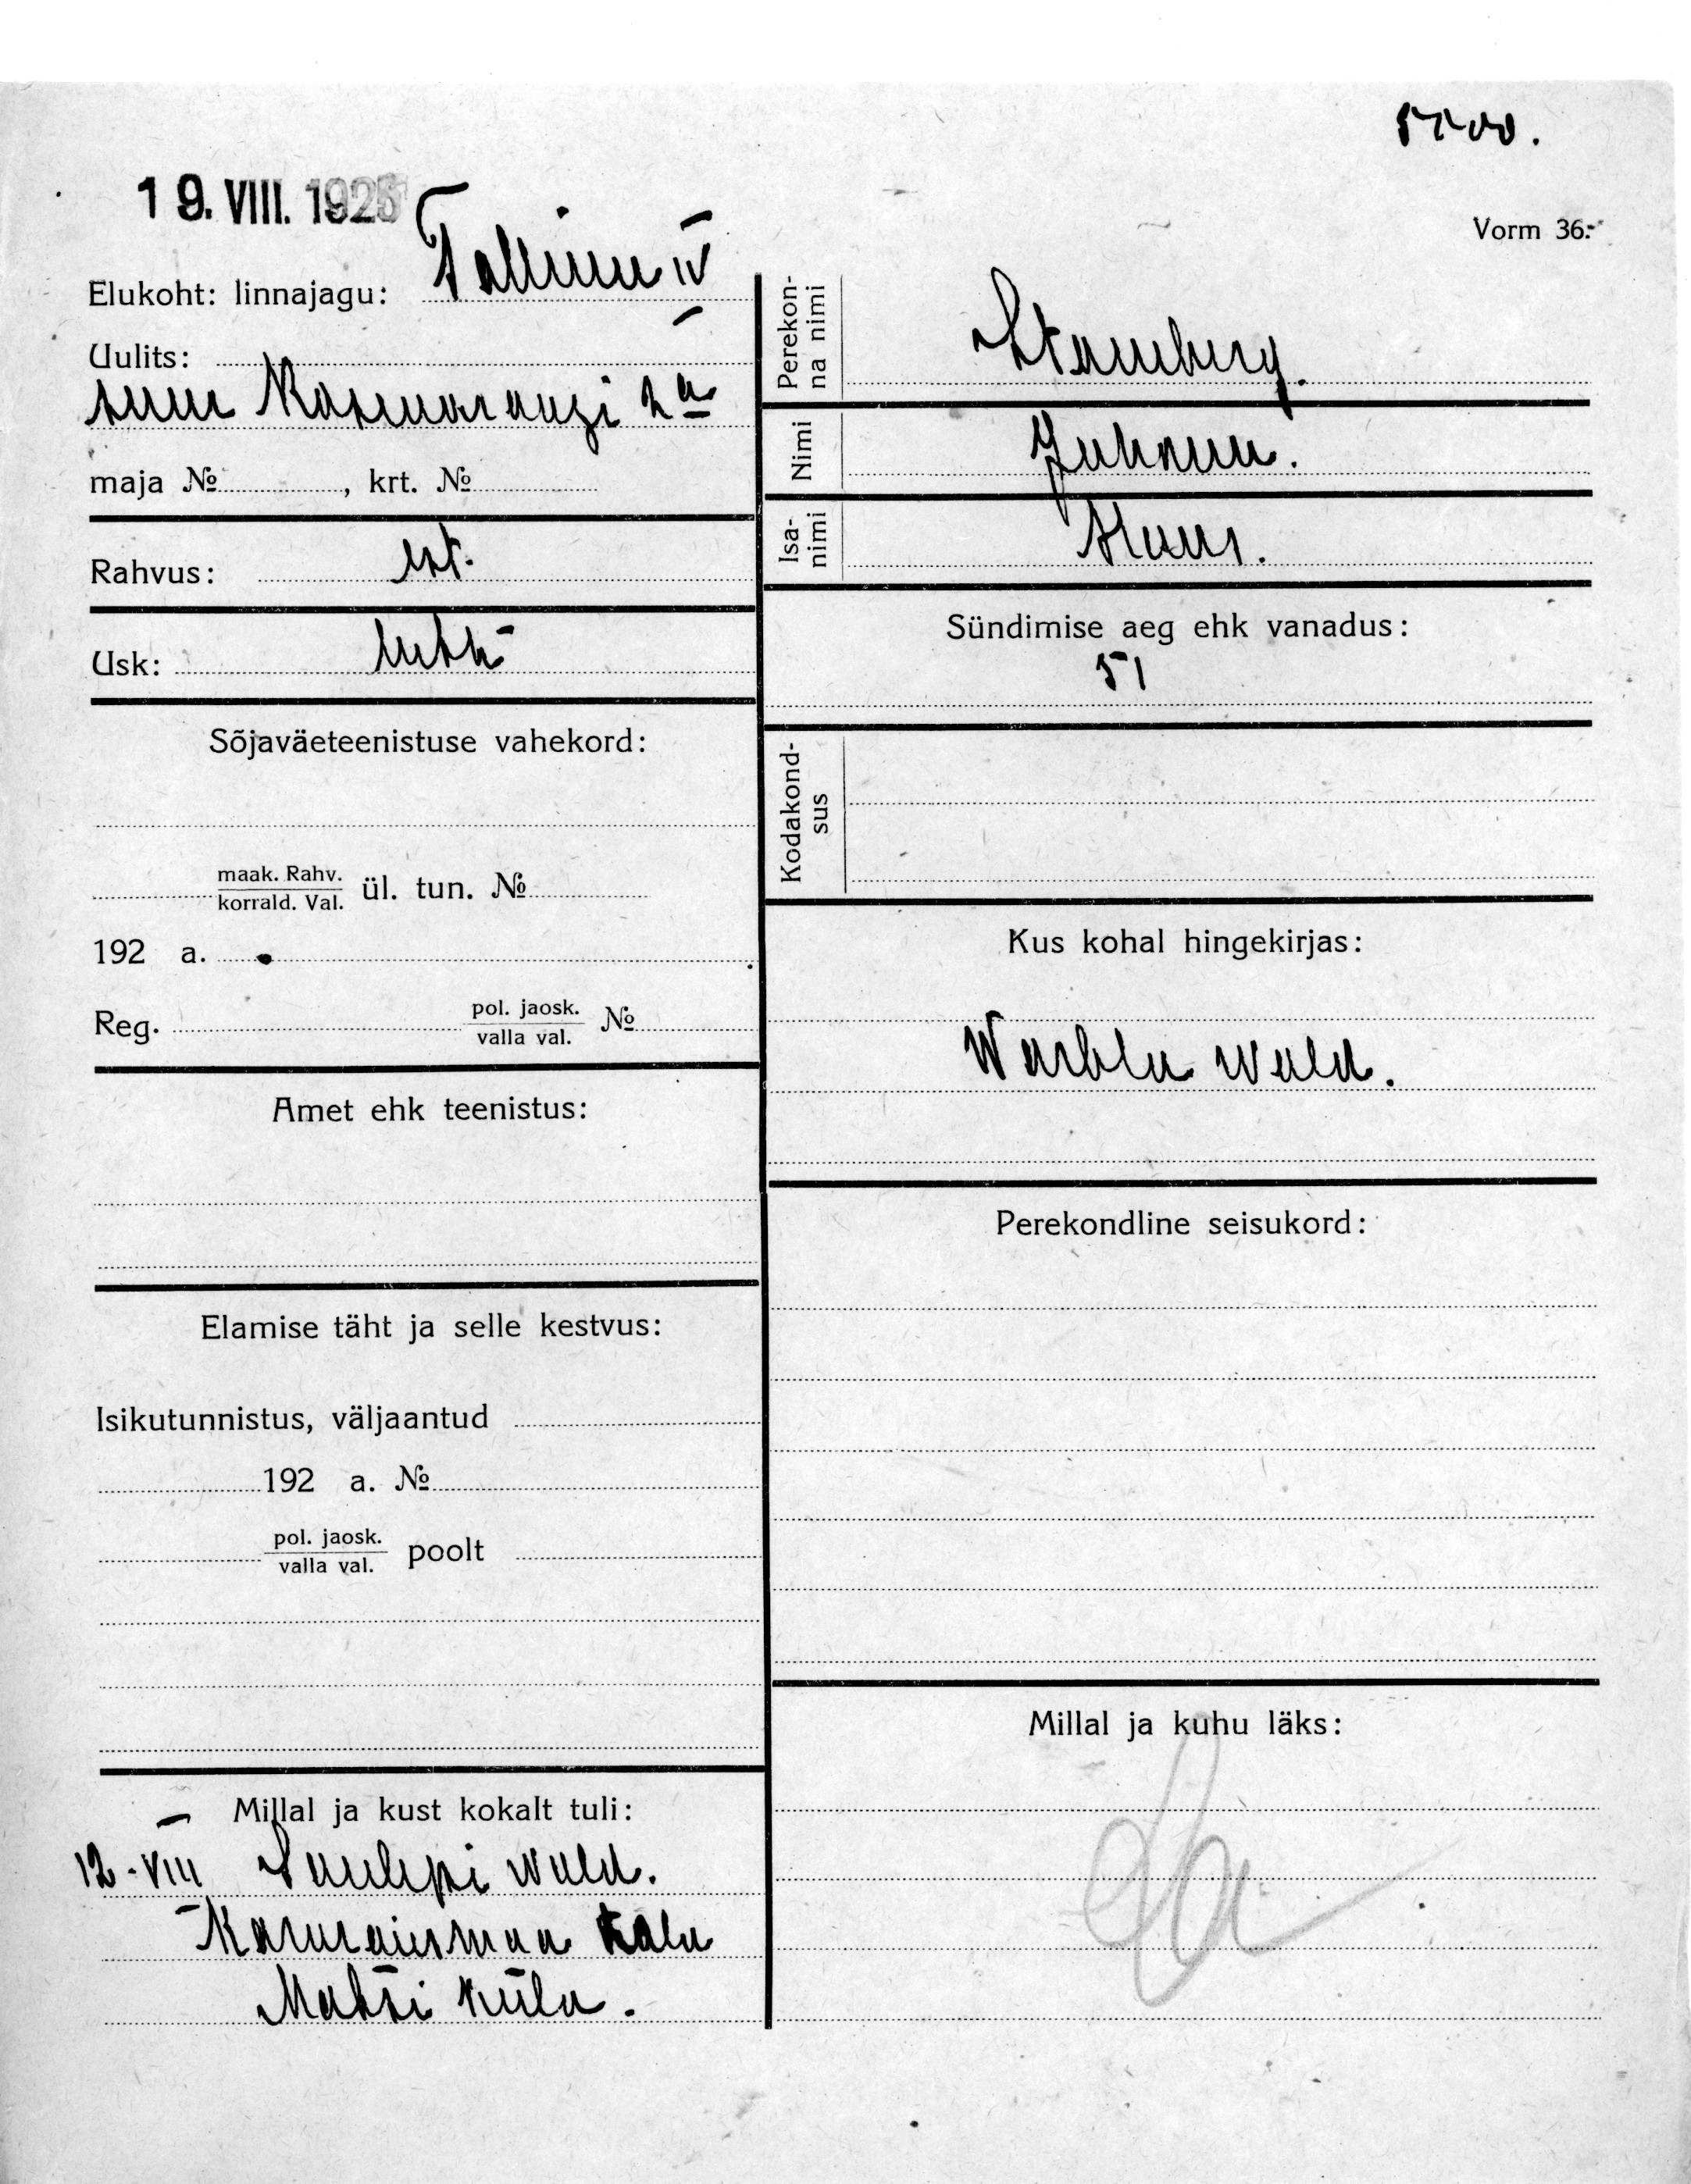 19. VIII. 1925
Vorm 36.
Elukoht: linnajagu: Tallinn IV
Uulits:
suur Kasmarangi 2a
maja № , krt. №
Rahvus: est.
Usk: luth
Sõjaväeteenistuse vahekord:
maak. Rahv.
korrald. Val. ül. tun. №
192 a.
Reg. pol. jaosk.
valla val. №
Amet ehk teenistus:
Elamise täht ja selle kestvus:
Isikutunnistus, väljaantud
192 a. №
pol. jaosk.
valla val. poolt
Millal ja kust kokalt tuli:
12-VIII Saulepi wald.
talu
Matsi küla.
Perekon-
na nimi Stamberg.
Nimi Juhann.
Isa-
nimi
Sündimise aeg ehk vanadus:
51
Kodakond-
sus
Kus kohal hingekirjas:
Warbla wald.
Perekondline seisukord:
Millal ja kuhu läks: